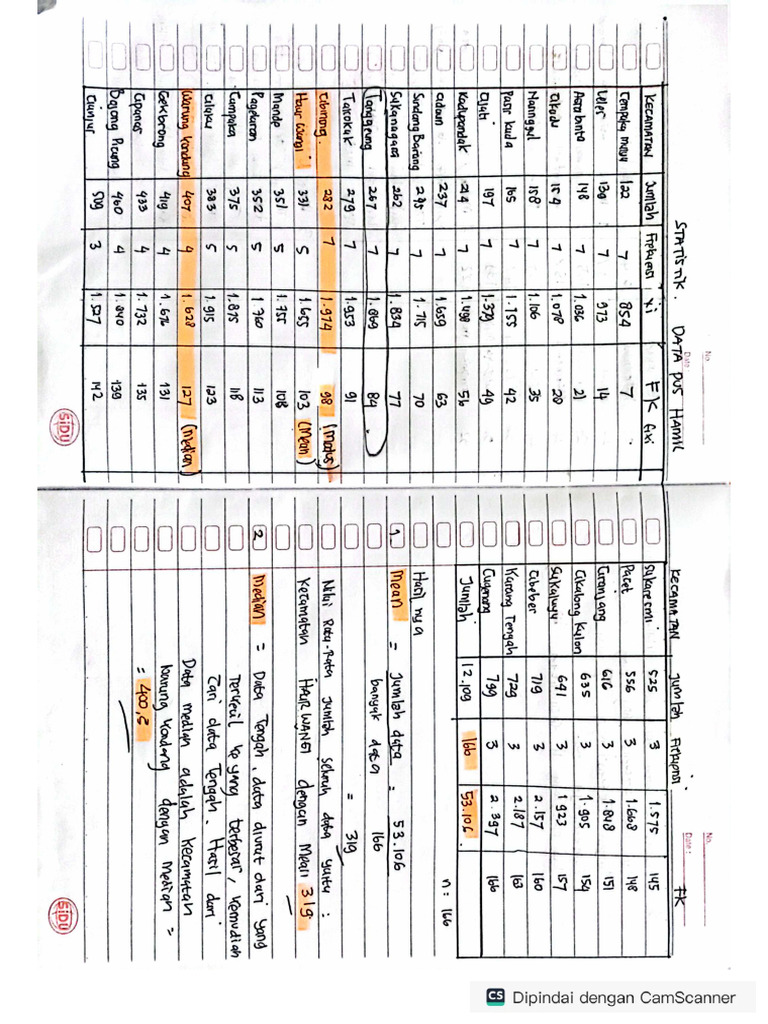 No.
Date:
STATISTIK. DATA PUS HAMIL
KECAMATAN Jumlah Frekuensi xi FK fixi
Cempaka Mulya 122 7 854 7
Leles 139 7 973 14
Agrabinta 148 7 1.036 21
Cikadu 154 7 1.078 28
Naringgul 158 7 1.106 35
Pasir Kuda 165 7 1.155 42
Cijati 197 7 1.379 49
Kadupandak 214 7 1.498 56
Cidaun 237 7 1.659 63
Sindang Barang 245 7 1.715 70
Sukanagara 262 7 1.834 77
Tanggeung 267 7 1.869 84
Takokak 279 7 1.953 91
Cibinong. 282 7 1.974 98 (modus)
Haur Wangi 331 5 1.655 103 (Mean)
Mande 351 5 1.755 108
Pagelaran 352 5 1.760 113
Campaka 375 5 1.875 118
Cilaku 383 5 1.915 123
Warung kondang 407 4 1.628 127 (median)
Gekbrong 419 4 1.676 131
Cipanas 433 4 1.732 135
Bojong Picung 460 4 1.840 139
Cianjur 509 3 1.527 142
SiDU
No.
Date:
KECAMATAN Jumlah Frekuensi. FK
Sukaresmi 525 3 1.575 145
Pacet 556 3 1.668 148
Ciranjang 616 3 1.848 151
Cikalong Kulon 635 3 1.905 154
Sukaluyu 641 3 1.923 157
Cibeber 719 3 2.157 160
Karang Tengah 729 3 2.187 163
Cugenang 799 3 2.397 166
Jumlah 12.109 166 53.106.
n: 166
Hasilnya
1. Mean = Jumlah data = 53.106
banyak data 166
= 319
Nilai Rata-Rata Jumlah seluruh data yaitu :
Kecamatan HAURWANGI dengan Mean 319
2. Median = Data Tengah, data diurut dari yang
Terkecil ke yang terbesar, kemudian
Cari data Tengah. Hasil dari
Data median adalah Kecamatan
Warung Kondang dengan median =
= 400,5
SiDU
CS Dipindai dengan CamScanner